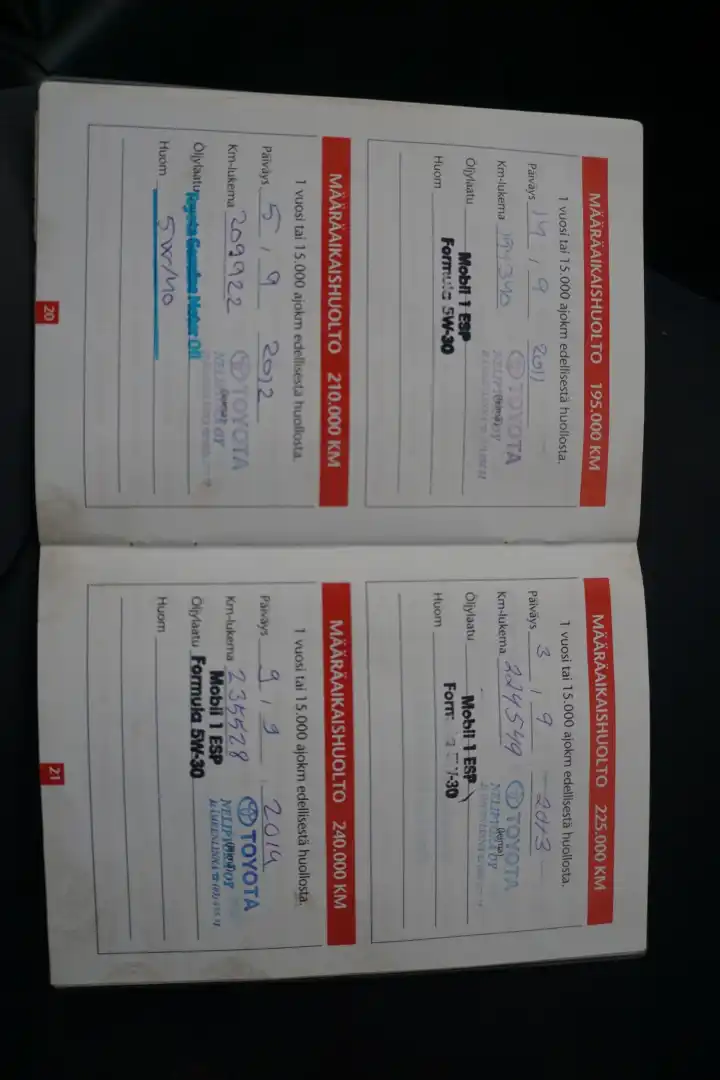 MÄÄRÄAIKAISHUOLTO 195.000 KM
1 vuosi tai 15.000 ajokm edellisestä huollosta.
Päiväys 14 , 9 2011
Km-lukema 194340
TOYOTA
Öljylaatu Mobil 1 ESP
Formula 5W-30
Huom
MÄÄRÄAIKAISHUOLTO 210.000 KM
1 vuosi tai 15.000 ajokm edellisestä huollosta.
Päiväys 5 , 9 2012
Km-lukema 209922
TOYOTA
NELIPYÖRÄ OY
Öljylaatu Toyota Genuine Motor Oil
Huom 5W/40
20
MÄÄRÄAIKAISHUOLTO 225.000 KM
1 vuosi tai 15.000 ajokm edellisestä huollosta.
Päiväys 3 , 9 2013
Km-lukema 224549
TOYOTA
NELIPYÖRÄ OY
Öljylaatu Mobil 1 ESP
-30
Huom
MÄÄRÄAIKAISHUOLTO 240.000 KM
1 vuosi tai 15.000 ajokm edellisestä huollosta.
Päiväys 9 , 9 , 2014
Km-lukema 235528
TOYOTA
NELIPYÖRÄ OY
HÄMEENLINNA
Öljylaatu Mobil 1 ESP
Formula 5W-30
Huom
21